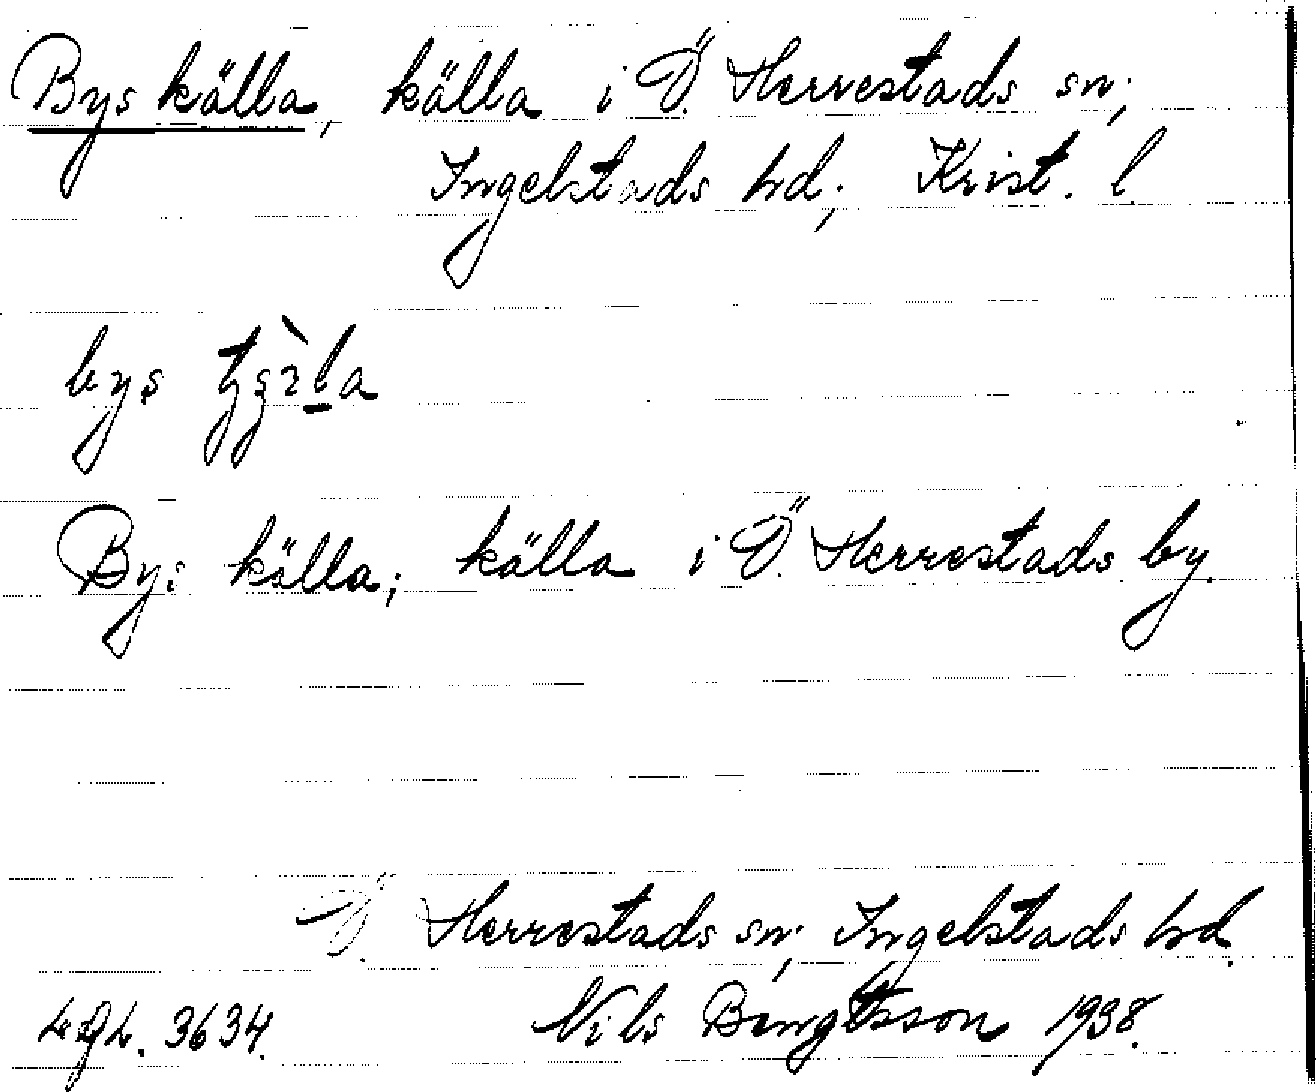 Bys källa, källa i Ö. Herrestads sn;
Ingelstads hd; Krist. l.
bys
Bys källa; källa i Ö. Herrestads by.
Ö. Herrestads sn; Ingelstads hd.
3634. Nils Bengtsson 1938.